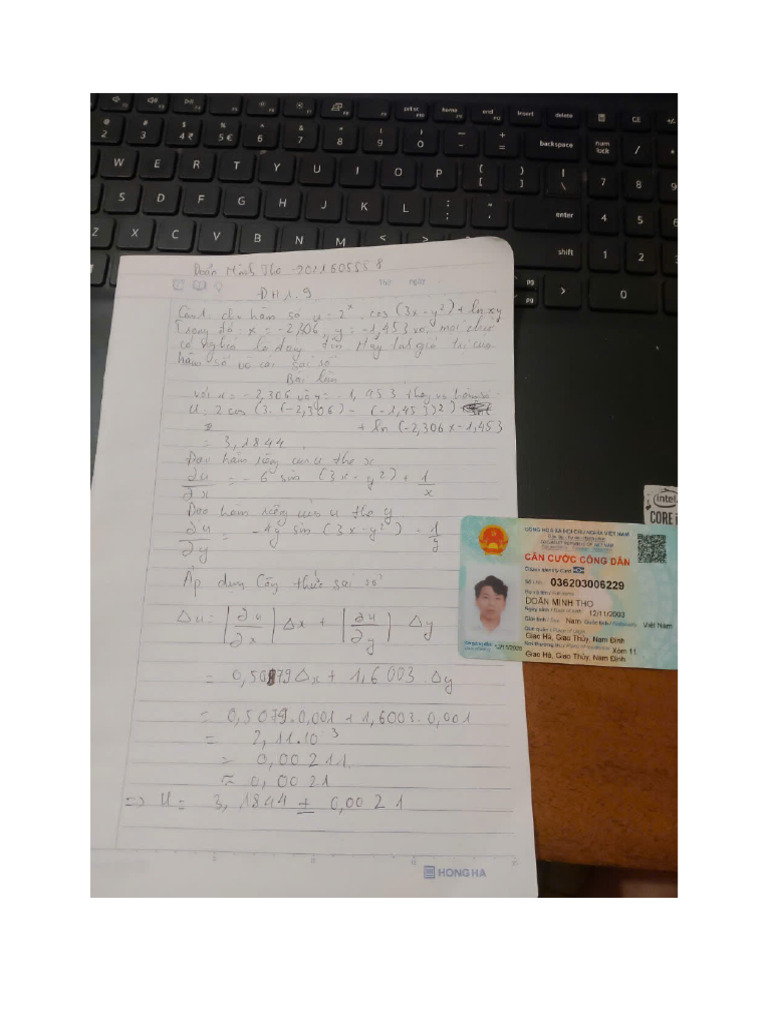 Doãn Minh Thọ - 2021605558
ĐH1.9
Câu 1: cho hàm số u = 2^x . cos(3x - y²) + ln xy
Trong đó: x = -2,306, y = -1,453 và mọi chữ
có nghĩa là đáng tin. Hãy tính giá trị của
hàm số và các sai số
Bài làm
với x = -2,306 và y = -1,453 thay vào hàm số:
u = 2 cos (3. (-2,306) - (-1,453)²)
+ ln (-2,306 x -1,453
= 3,1844
Đạo hàm riêng của u the x
∂u/∂x = - 6 sin (3x - y²) + 1/x
Đạo hàm riêng của u the y
∂u/∂y = -4y sin (3x - y²) - 1/y
Áp dụng Công thức sai số
Δu = |∂u/∂x| Δx + |∂u/∂y| Δy
= 0,5079 Δx + 1,6003 . Δy
= 0,5079 . 0,001 + 1,6003 . 0,001
= 2,11.10⁻³
= 0,00211
≈ 0,0021
=> U = 3,1844 ± 0,0021
HONG HA
intel
CORE i
CỘNG HÒA XÃ HỘI CHỦ NGHĨA VIỆT NAM
CĂN CƯỚC CÔNG DÂN
Citizen Identity Card
Số / No.: 036203006229
Họ và tên / Full name:
DOÃN MINH THỌ
Ngày sinh / Date of birth: 12/11/2003
Giới tính / Sex: Nam Quốc tịch / Nationality: Việt Nam
Quê quán / Place of origin:
Giao Hà, Giao Thủy, Nam Định
Nơi thường trú / Place of residence: Xóm 11
Giao Hà, Giao Thủy, Nam Định